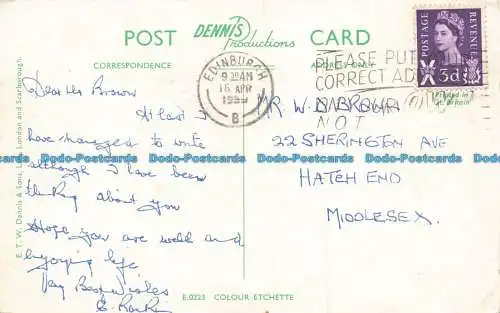 POST DENNIS Productions CARD
CORRESPONDENCE ADDRESS ONLY
POSTAGE REVENUE
3d
EDINBURGH
16 APR
B
PLEASE PUT
CORRECT
NOT
Printed in
Gt. Britain
Dear Mr Brown
At last I
have managed to write
although I have been
thinking about you
Hope you are well and
enjoying life
Very Best Wishes
MR W. BROWN
22 SHERINGTON AVE
HATCH END
MIDDLESEX.
E. T. W. Dennis & Sons, Ltd., London and Scarborough.
E.0223 COLOUR ETCHETTE
Bodo-Postcards Bodo-Postcards Bodo-Postcards Bodo-Postcards